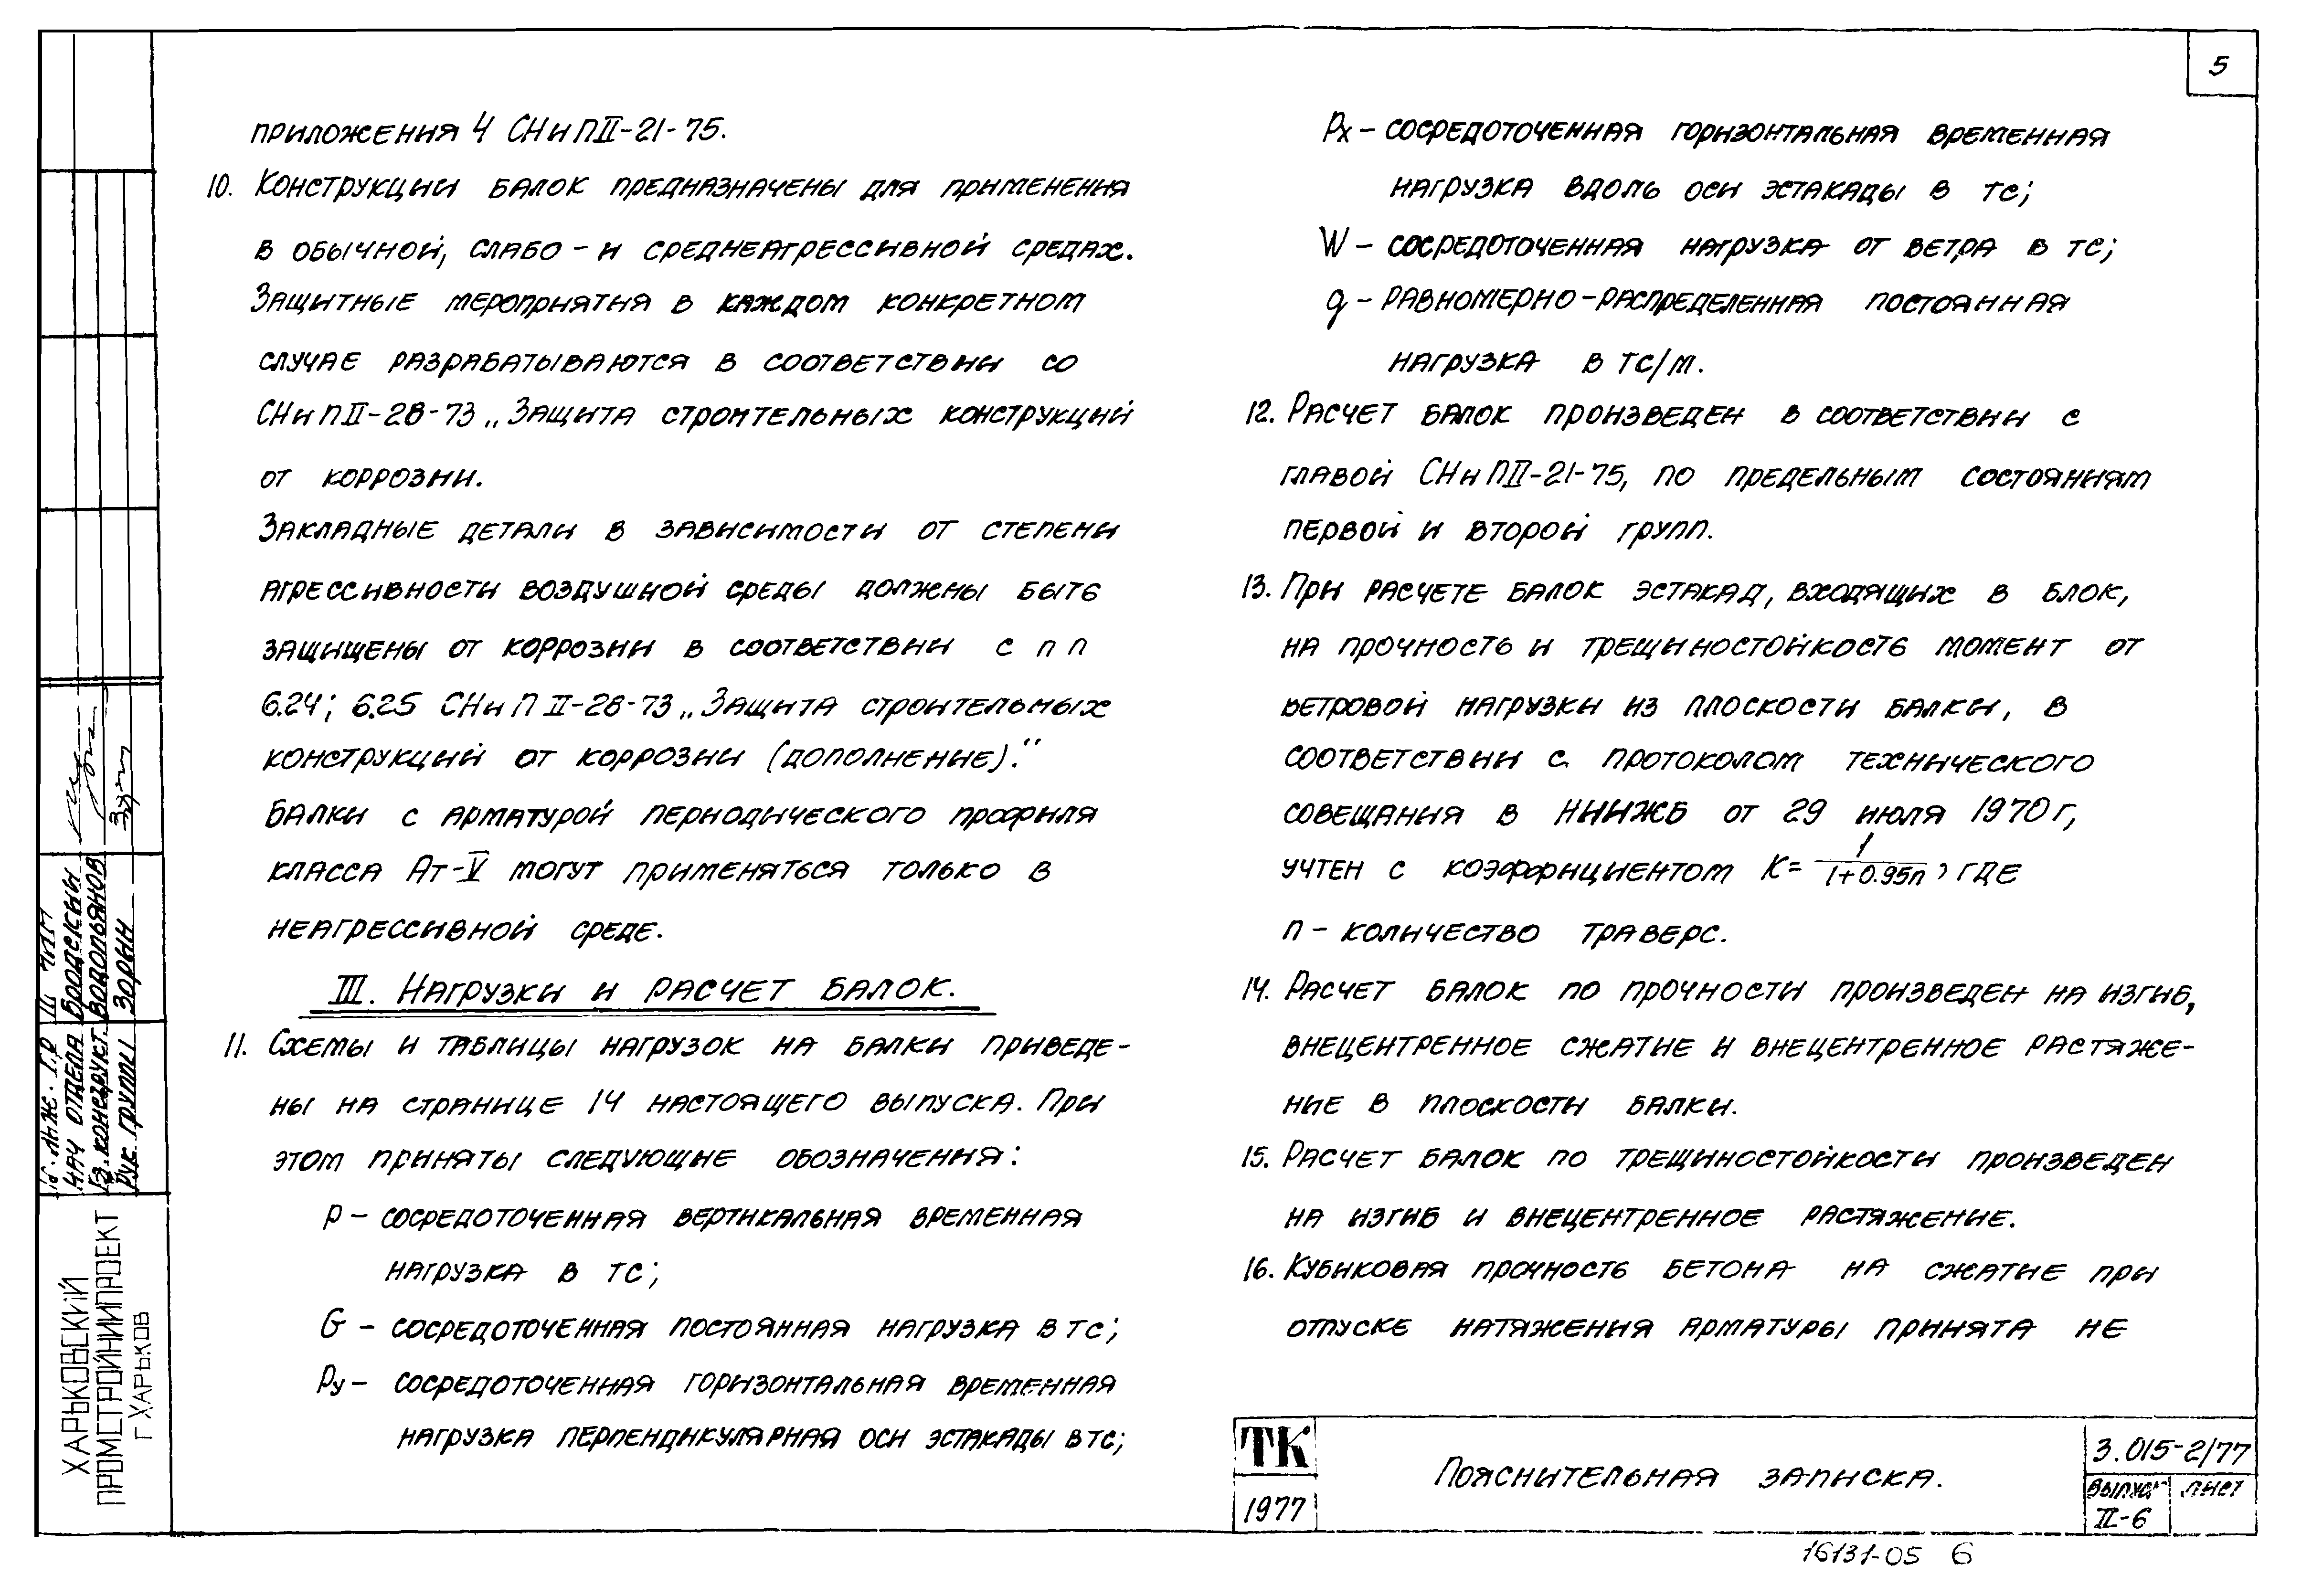 5
приложения 4 СНиПII-21-75.
10. Конструкции балок предназначены для применения
в обычной, слабо- и среднеагрессивной средах.
Защитные мероприятия в каждом конкретном
случае разрабатываются в соответствии со
СНиПII-28-73 „Защита строительных конструкций
от коррозии.
Закладные детали в зависимости от степени
агрессивности воздушной среды должны быть
защищены от коррозии в соответствии с п п
6.24; 6.25 СНиП II-28-73 „Защита строительных
конструкций от коррозии (дополнение).“
Балки с арматурой периодического профиля
класса Ат-V могут применяться только в
неагрессивной среде.
III. Нагрузки и расчет балок.
11. Схемы и таблицы нагрузок на балки приведе-
ны на странице 14 настоящего выпуска. При
этом приняты следующие обозначения:
P – сосредоточенная вертикальная временная
нагрузка в тс;
G – сосредоточенная постоянная нагрузка в тс;
Pу – сосредоточенная горизонтальная временная
нагрузка перпендикулярная оси эстакады в тс;
Pх – сосредоточенная горизонтальная временная
нагрузка вдоль оси эстакады в тс;
W – сосредоточенная нагрузка от ветра в тс;
q – равномерно-распределенная постоянная
нагрузка в тс/м.
12. Расчет балок произведен в соответствии с
главой СНиПII-21-75, по предельным состояниям
первой и второй групп.
13. При расчете балок эстакад, входящих в блок,
на прочность и трещиностойкость момент от
ветровой нагрузки из плоскости балки, в
соответствии с протоколом технического
совещания в НИИЖБ от 29 июля 1970г,
учтен с коэффициентом K= 1/(1+0.95n), где
n – количество траверс.
14. Расчет балок по прочности произведен на изгиб,
внецентренное сжатие и внецентренное растяже-
ние в плоскости балки.
15. Расчет балок по трещиностойкости произведен
на изгиб и внецентренное растяжение.
16. Кубиковая прочность бетона на сжатие при
отпуске натяжения арматуры принята не
нач отдела Бродский
Гл. конструкт. Водопьянов
Рук. группы Зорин
Харьковский
Промстройниипроект
г Харьков
ТК
1977
Пояснительная записка.
3.015-2/77
выпуск лист
II-6
16131-05 6